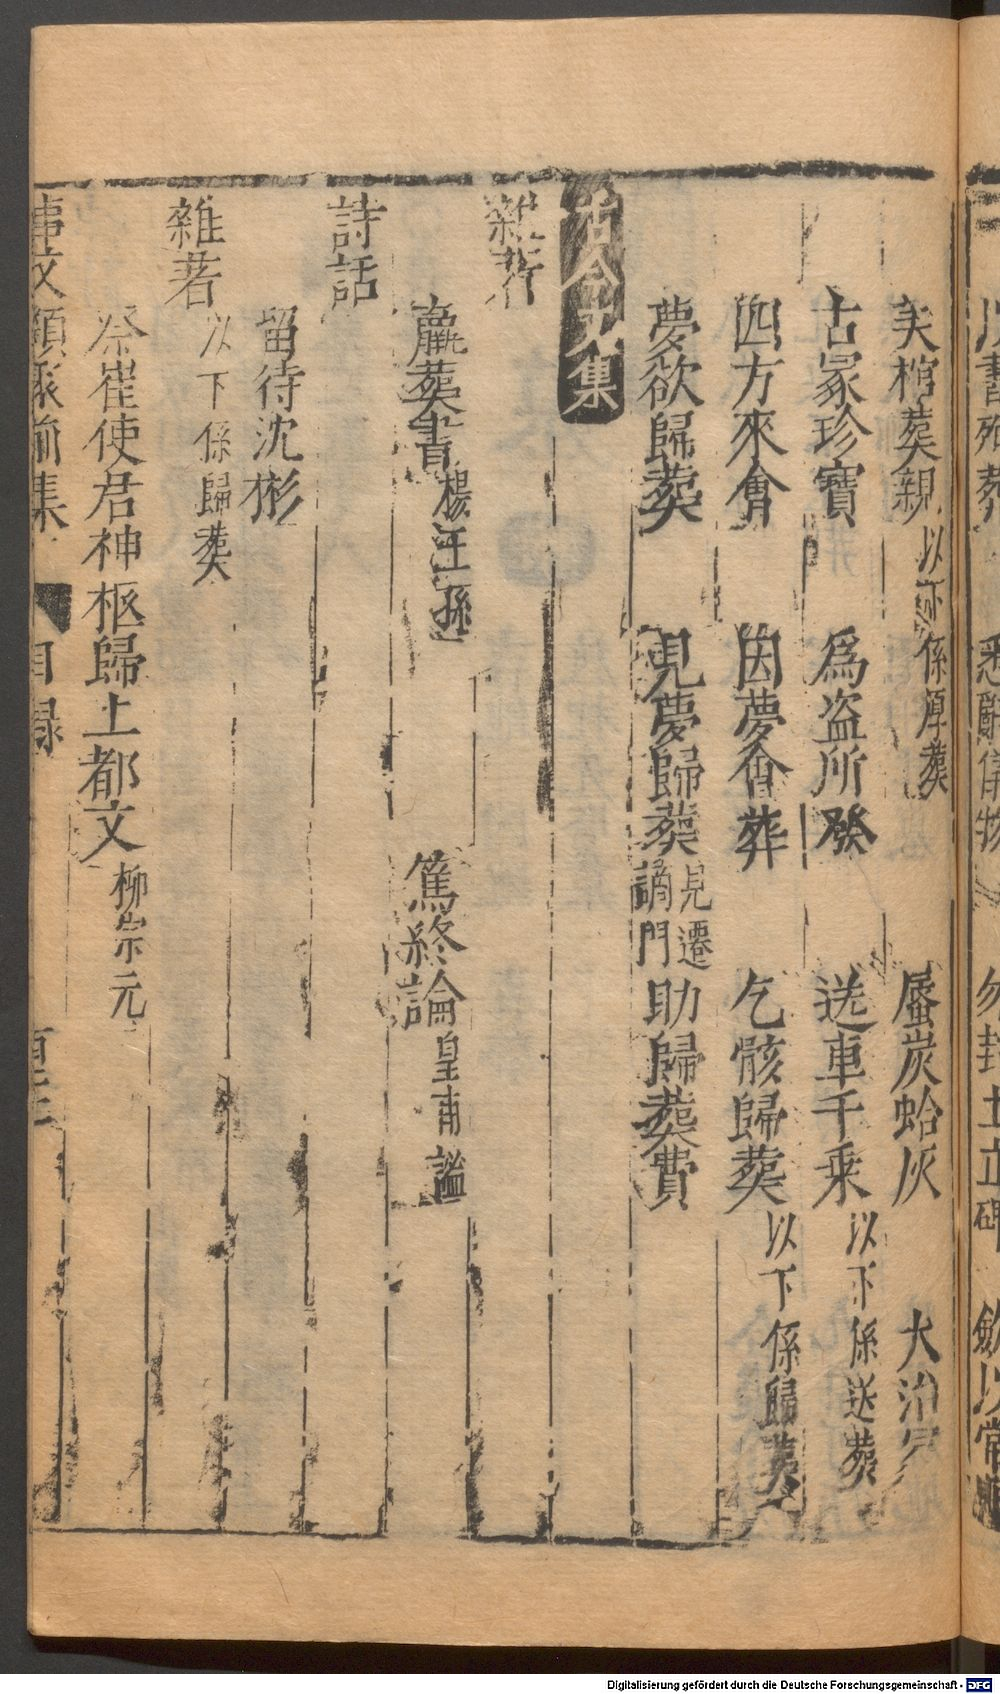 美棺葬親以亦係厚葬 蜃炭蛤灰 大治
古冢珍寶 爲盗所發 送車千乘以下係送葬
四方來會 因夢會葬 乞骸歸葬以下係歸葬
夢欲歸葬 見夢歸葬見遷謫門 助歸葬費
古今文集
雜著
臝葬書楊王孫 篤終論皇甫謐
詩話
留待沈彬
雜著以下係歸葬
祭崔使君神柩歸上都文柳宗元
事文類聚前集 目録
Digitalisierung gefördert durch die Deutsche Forschungsgemeinschaft - DFG